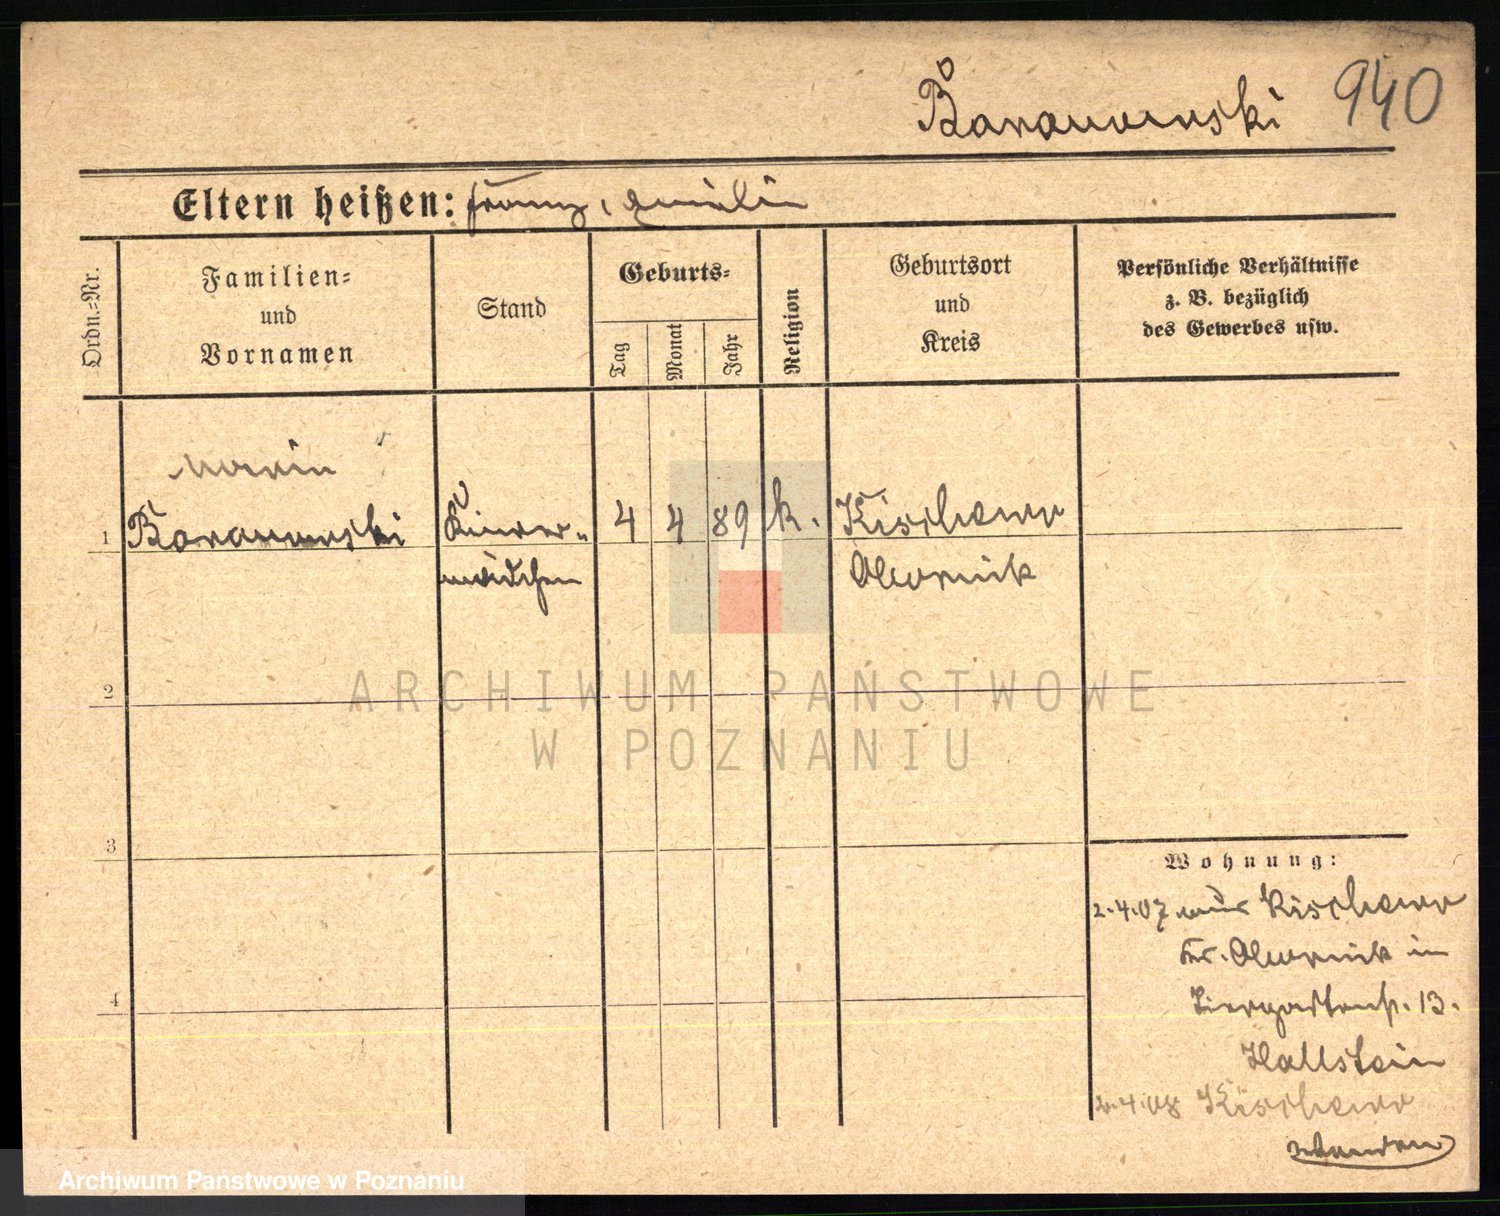 Baranowski 940
Eltern heißen: Franz, Emilie
Ordn.-Nr.
Familien-
und
Vornamen
Stand
Geburts-
Tag
Monat
Jahr
Religion
Geburtsort
und
Kreis
Persönliche Verhältnisse
z. B. bezüglich
des Gewerbes usw.
Marie
1 Baranowski Kinder- 4 4 89 k. Kischewo
mädchen Obornik
2
3
4
Wohnung:
2.4.07 aus Kischewo
Kr. Obornik in
Tiergartenstr. 13.
Hallstein
2.4.08 Kischewo
ARCHIWUM PAŃSTWOWE
W POZNANIU
Archiwum Państwowe w Poznaniu